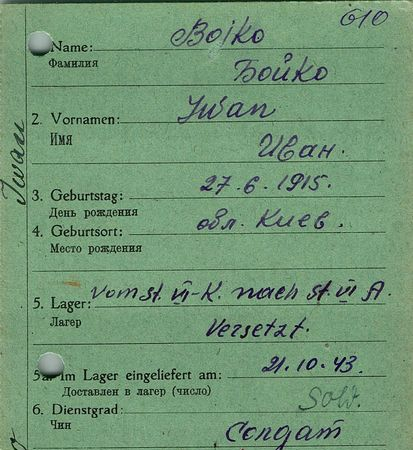 610
Name: Boiko
Фамилия
Бойко
2. Vornamen: Iwan
Имя
Иван.
Iwan
3. Geburtstag: 27.6.1915.
День рождения
4. Geburtsort: обл. Киев.
Место рождения
5. Lager: vom st. VI-K. nach st. VI A.
Лагерь
Versetzt.
5a. Im Lager eingeliefert am: 21.10.43.
Доставлен в лагерь (число)
Sold.
6. Dienstgrad:
Чин
Солдат